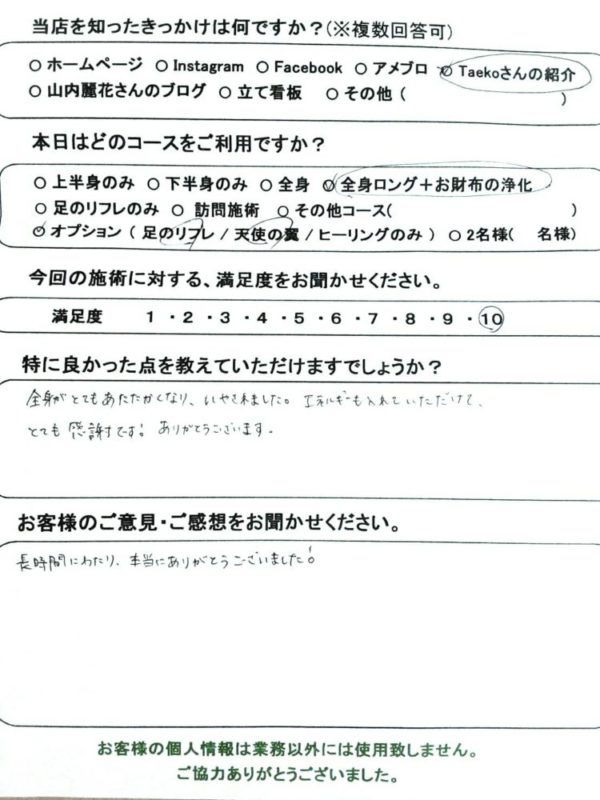 当店を知ったきっかけは何ですか？(※複数回答可)
○ ホームページ ○ Instagram ○ Facebook ○ アメブロ ○ Taekoさんの紹介
○ 山内麗花さんのブログ ○ 立て看板 ○ その他 ( )
本日はどのコースをご利用ですか？
○ 上半身のみ ○ 下半身のみ ○ 全身 ○ 全身ロング＋お財布の浄化
○ 足のリフレのみ ○ 訪問施術 ○ その他コース( )
○ オプション ( 足のリフレ / 天使の翼 / ヒーリングのみ ) ○ 2名様( 名様)
今回の施術に対する、満足度をお聞かせください。
満足度 1 ・ 2 ・ 3 ・ 4 ・ 5 ・ 6 ・ 7 ・ 8 ・ 9 ・ 10
特に良かった点を教えていただけますでしょうか？
全身がとてもあたたかくなり、いやされました。エネルギーも入れていただけて、
とても感謝です! ありがとうございます。
お客様のご意見・ご感想をお聞かせください。
長時間にわたり、本当にありがとうございました!
お客様の個人情報は業務以外には使用致しません。
ご協力ありがとうございました。